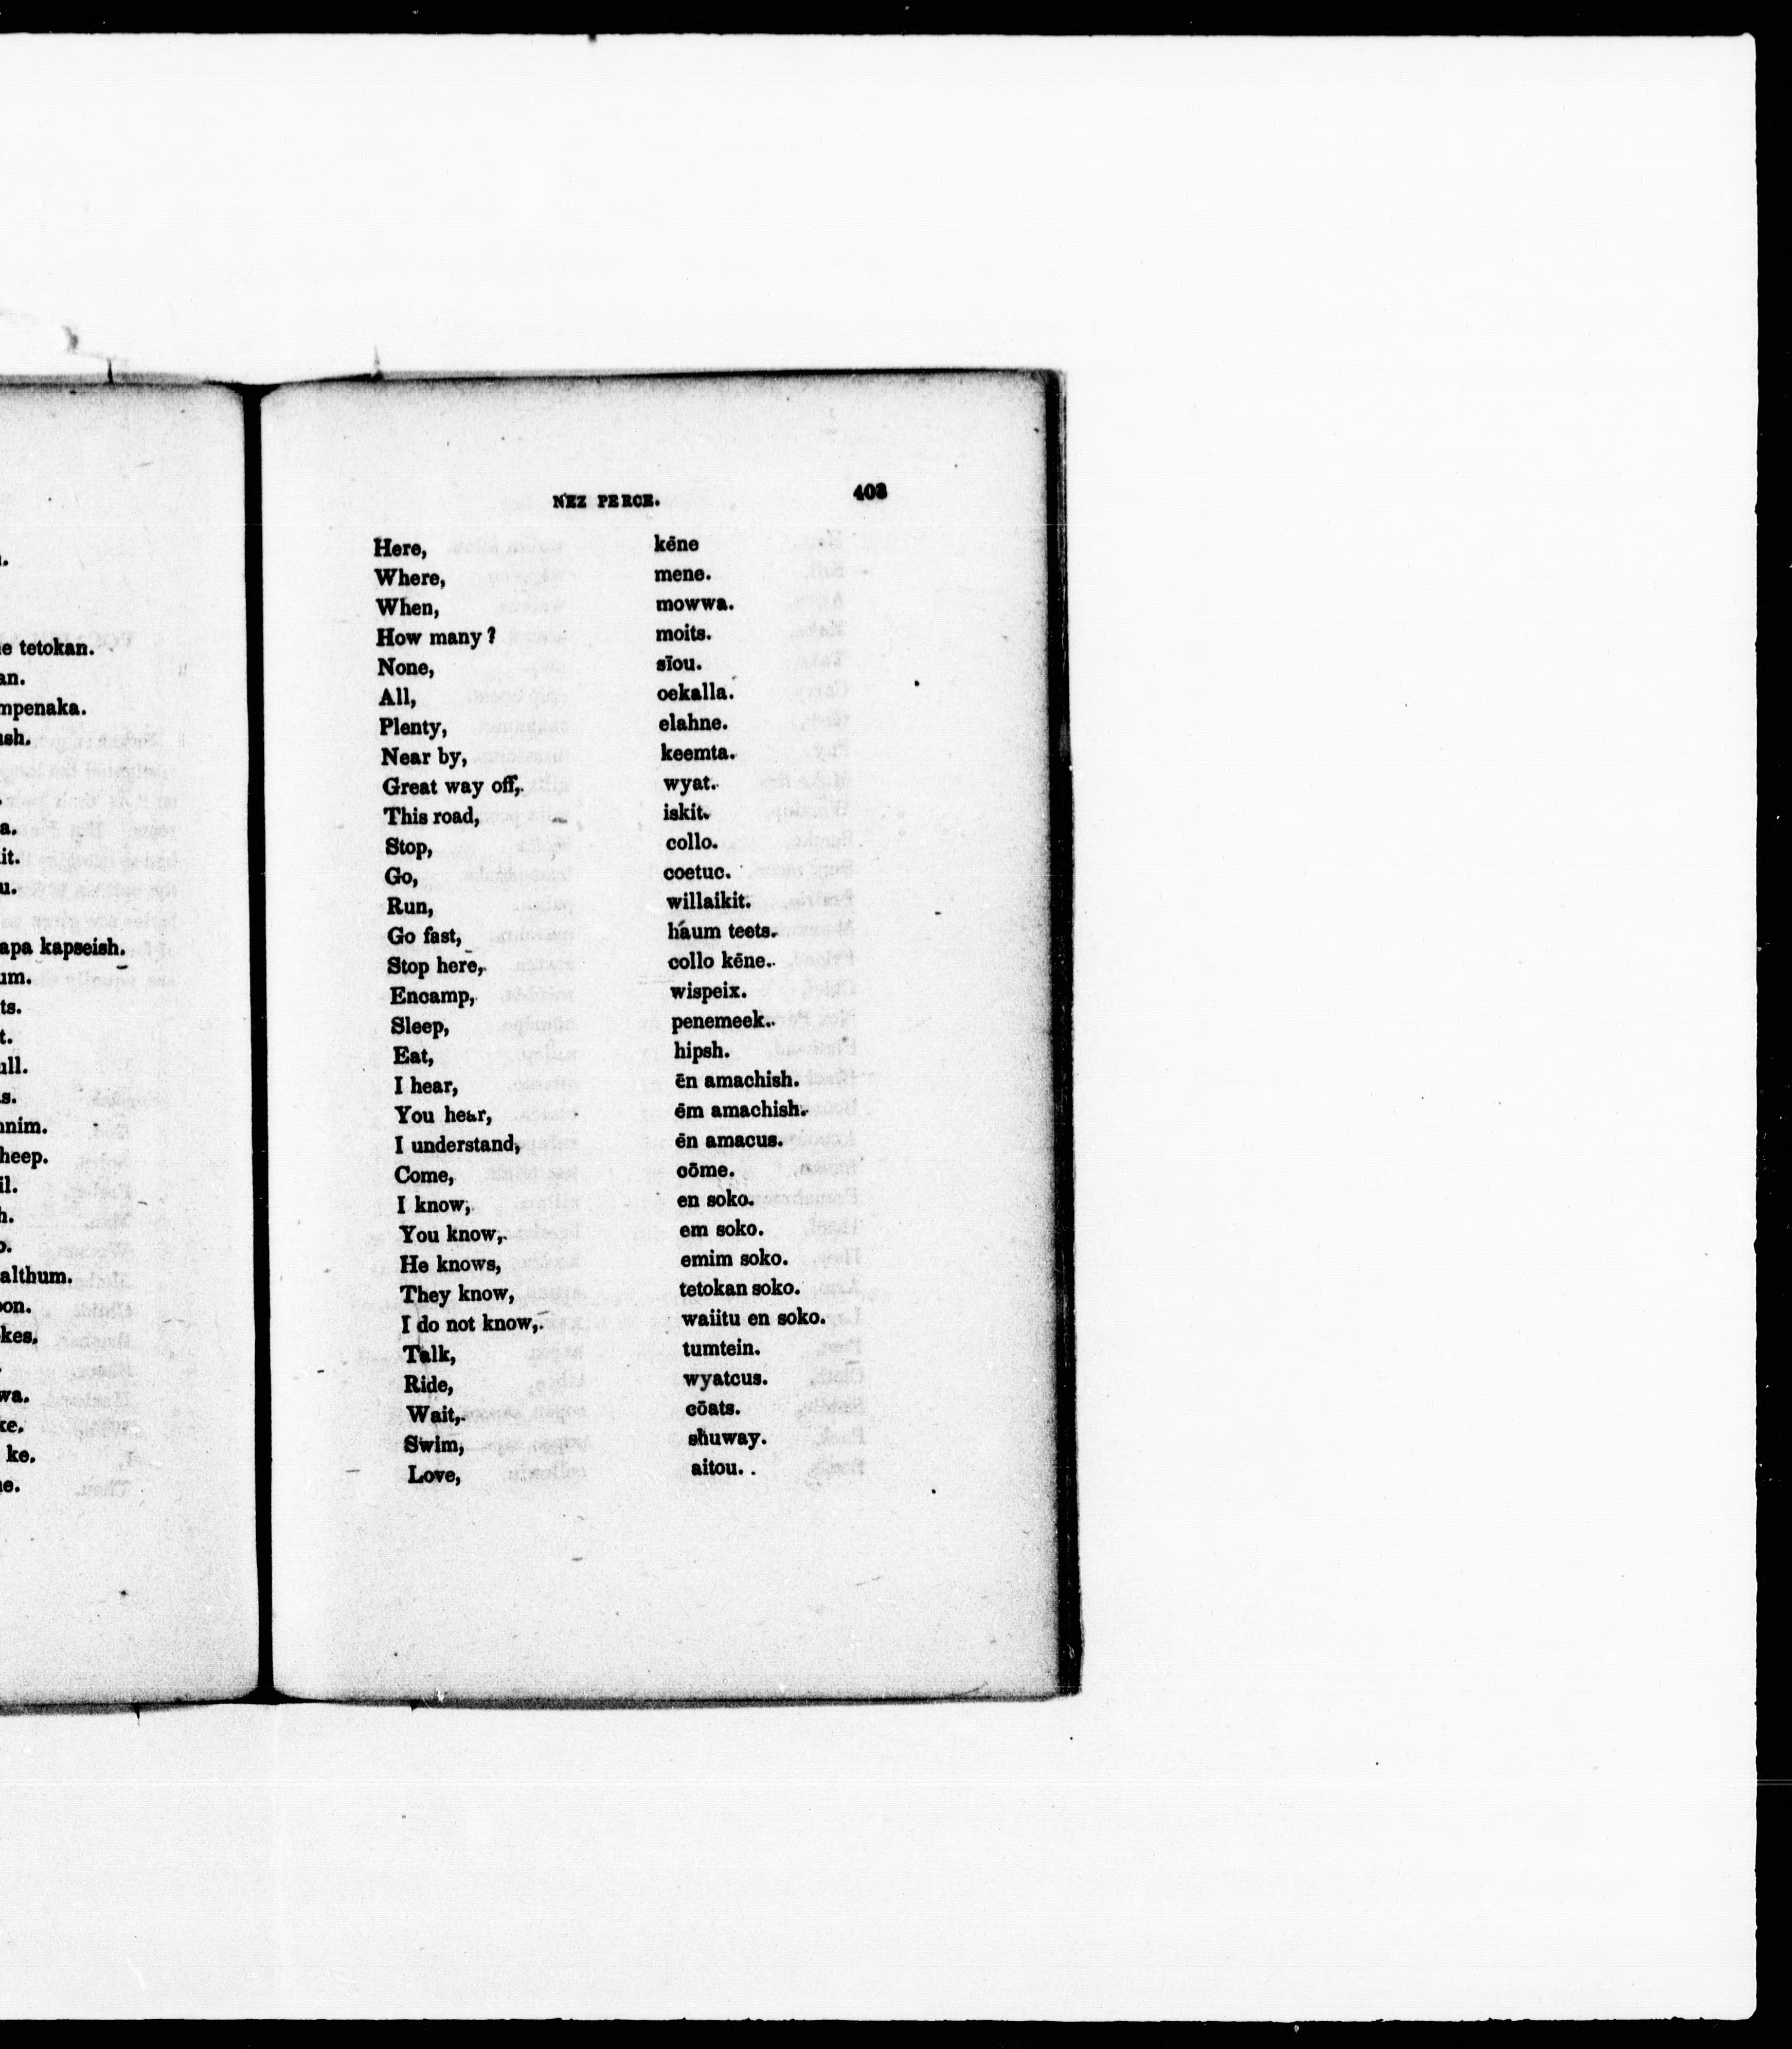 e tetokan.
NEZ PERCE. 403
Here, kēne
Where, mene.
When, mowwa.
How many? moits.
None, sīou.
All, oekalla.
Plenty, elahne.
Near by, keemta.
Great way off, wyat.
This road, iskit.
Stop, collo.
Go, coetuc.
Run, willaikit.
Go fast, haum teets.
Stop here, collo kēne.
Encamp, wispeix.
Sleep, penemeek.
Eat, hipsh.
I hear, ēn amachish.
You hear, ēm amachish.
I understand, ēn amacus.
Come, cōme.
I know, en soko.
You know, em soko.
He knows, emim soko.
They know, tetokan soko.
I do not know, waiitu en soko.
Talk, tumtein.
Ride, wyatcus.
Wait, cōats.
Swim, shuway.
Love, aitou.